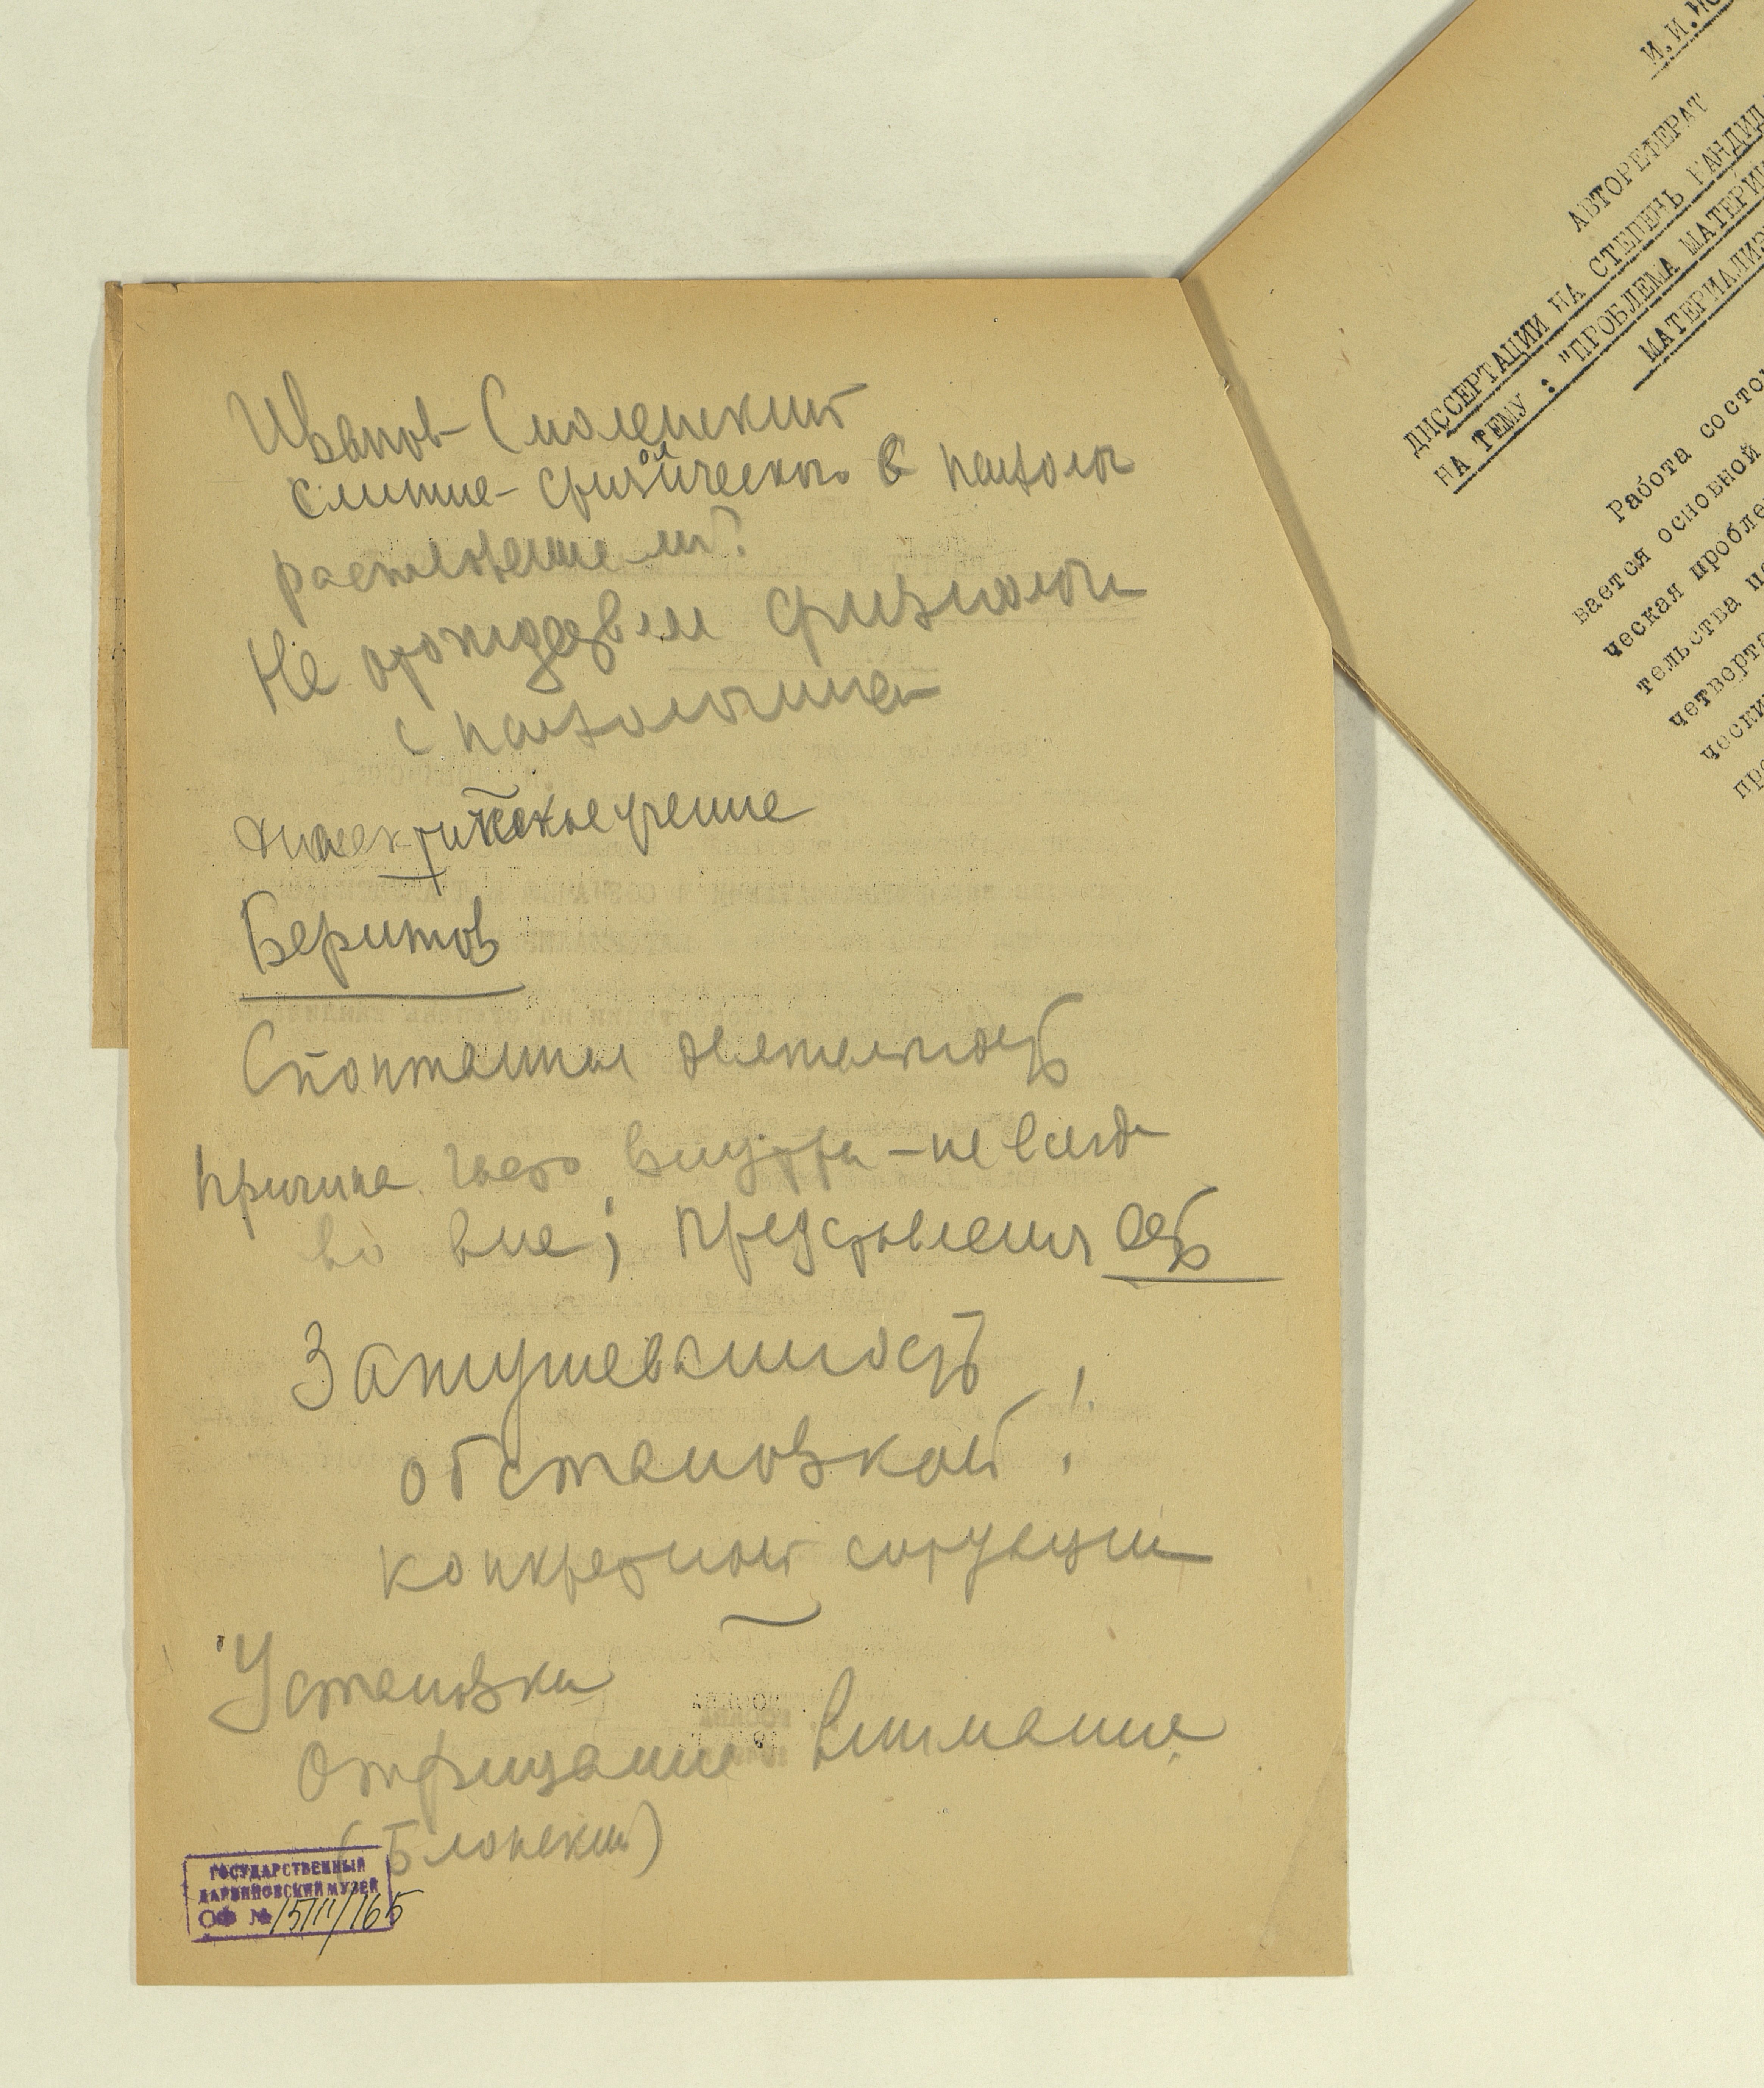 Иванов-Смоленский
слитие физиологического с психолог
растворение ли?
Не отождествл физиологи
с психологическ
диалектическое учение
Беритов
Спонтанная деятельность
причина часто внутри - не всегда
во вне; представления есть
Затушеванность
обстановкой!
конкретной ситуации
Установка
Отрицание внимания
(Блонский)
ГОСУДАРСТВЕННЫЙ
ДАРВИНОВСКИЙ МУЗЕЙ
ОФ № 15111/165
И.И.
АВТОРЕФЕРАТ
ДИССЕРТАЦИИ НА СТЕПЕНЬ КАНДИД
НА ТЕМУ : "ПРОБЛЕМА МАТЕРИ
МАТЕРИАЛИЗ
Работа состо
вается основной
ческая пробле
тельства по
четверта
чески
про